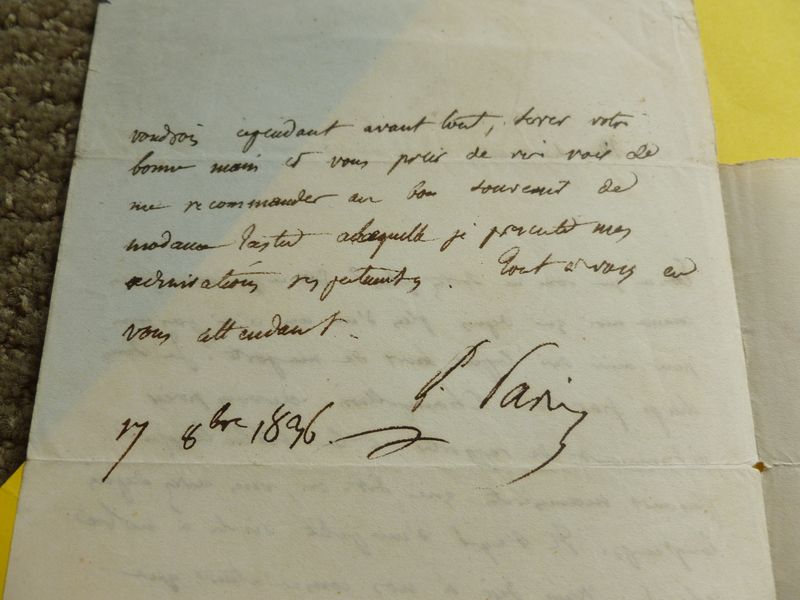 voudrois cependant avant tout, serrer votre
bonne main et vous prier de
me recommander au bon souvenir de
madame Tastu à laquelle je présente mes
admirations respectueuses. Tout à vous en
vous attendant.
P. Paris
17 8bre 1836